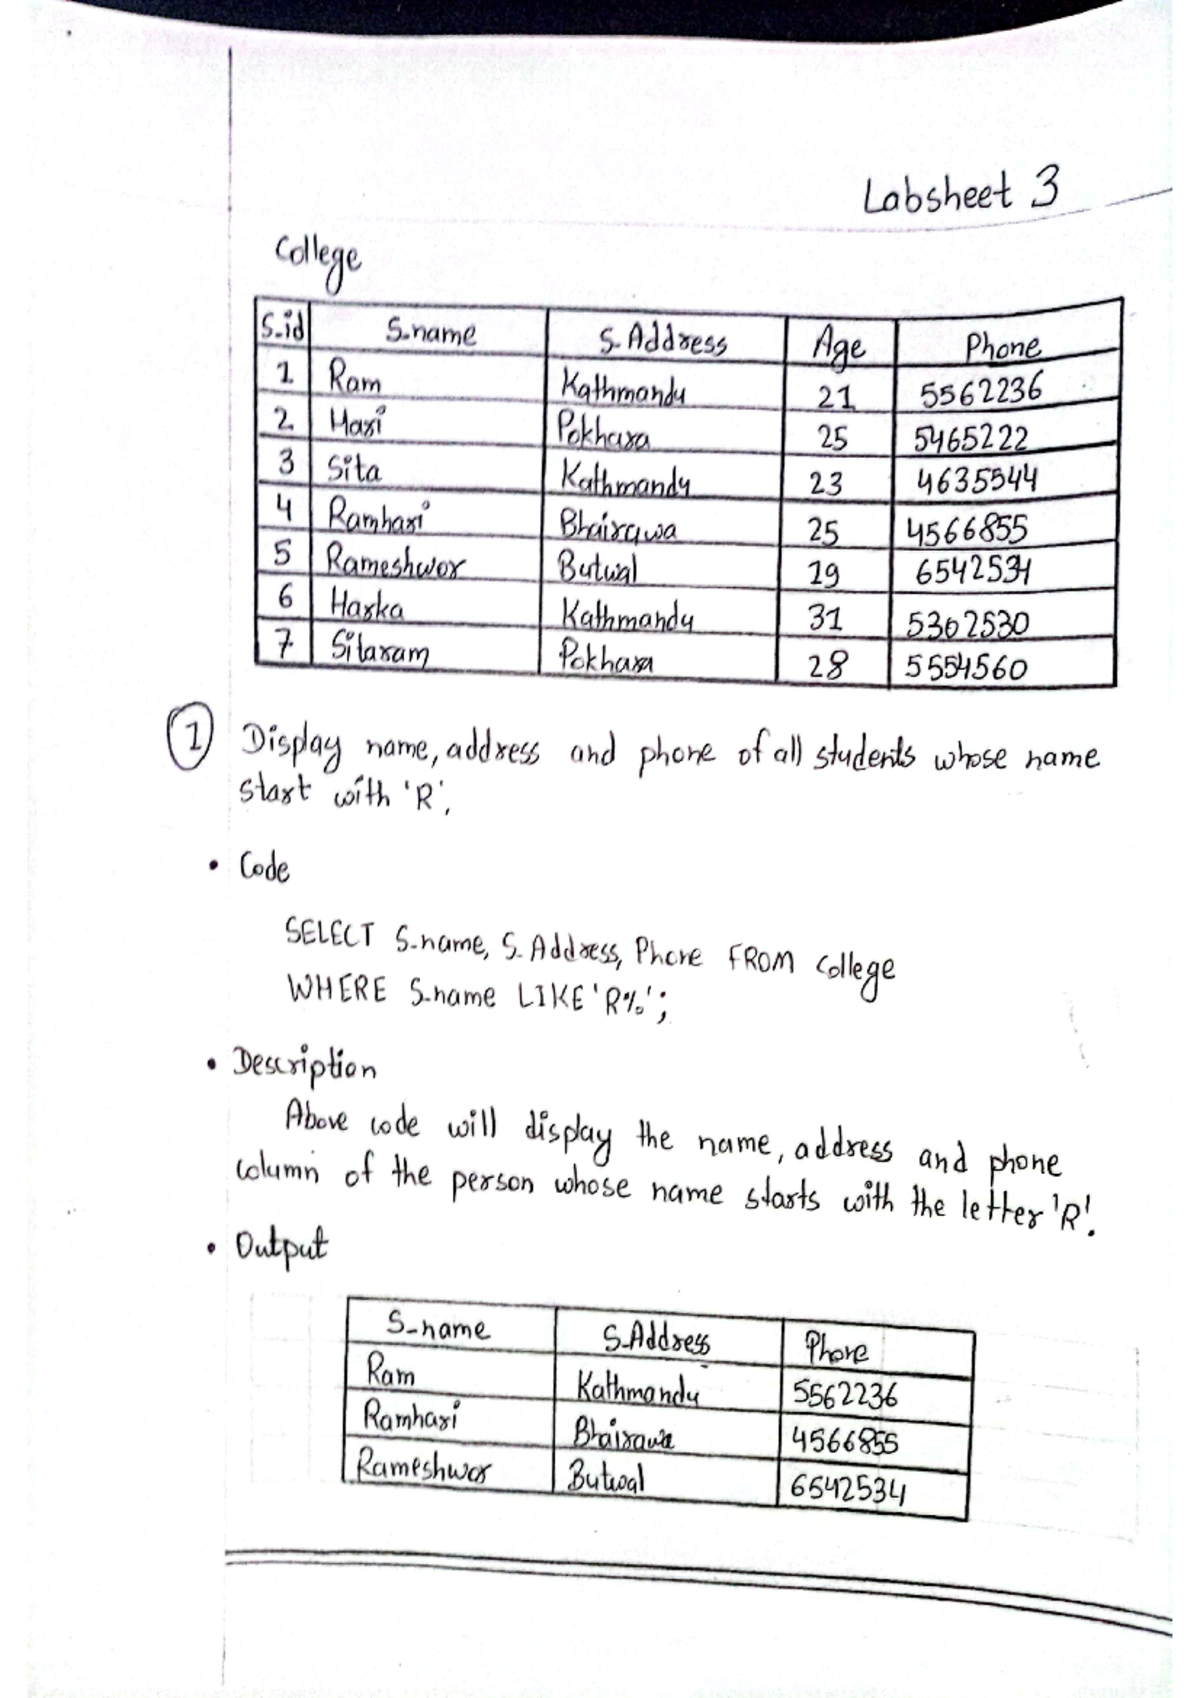 Labsheet 3
College
S-id S-name S-Address Age Phone
1 Ram Kathmandu 21 5562236
2 Hari Pokhara 25 5465222
3 Sita Kathmandu 23 4635544
4 Ramhari Bhairawa 25 4566855
5 Rameshwor Butwal 19 6542534
6 Harka Kathmandu 31 5302530
7 Sitaram Pokhara 28 5554560
1 Display name, address and phone of all students whose name
start with 'R',
• Code
SELECT S-name, S-Address, Phone FROM college
WHERE S-name LIKE 'R%';
• Description
Above code will display the name, address and phone
column of the person whose name starts with the letter 'R'.
• Output
S-name S-Address Phone
Ram Kathmandu 5562236
Ramhari Bhairawa 4566855
Rameshwor Butwal 6542534